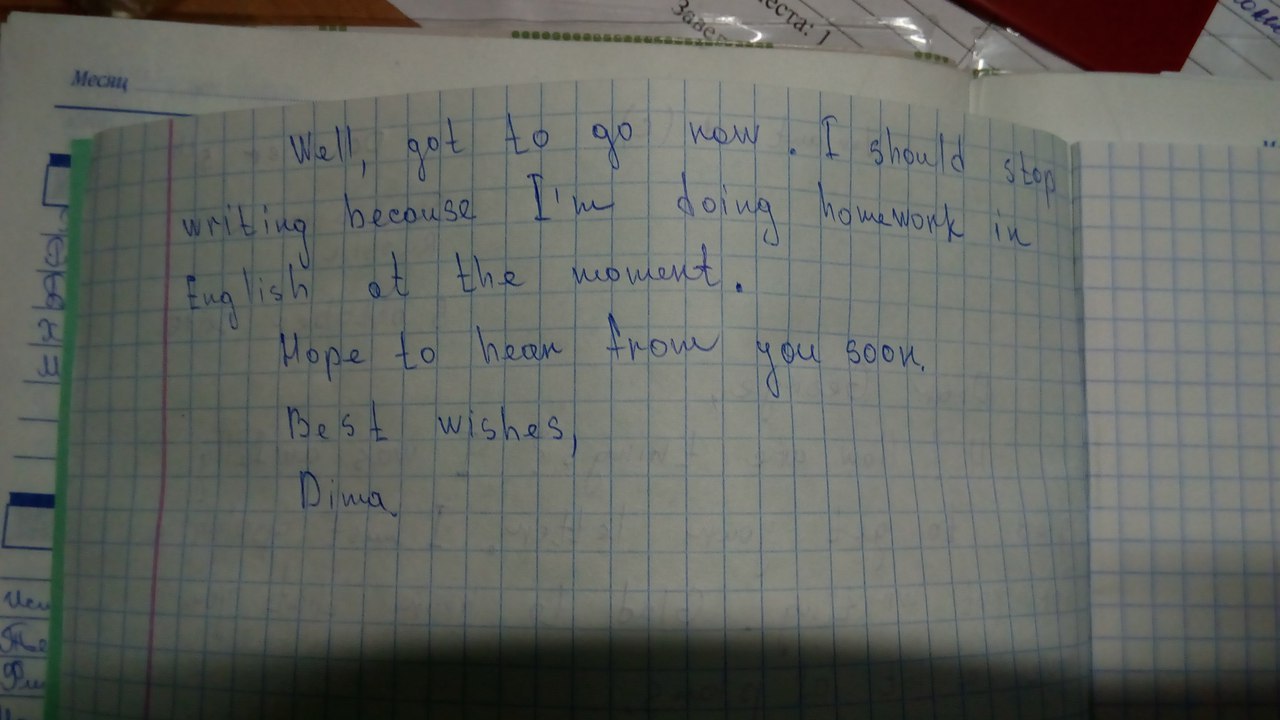 Месяц
Заве
еста: 1
Well, got to go now. I should stop
writing because I'm doing homework in
English at the moment.
Hope to hear from you soon.
Best wishes,
Dima